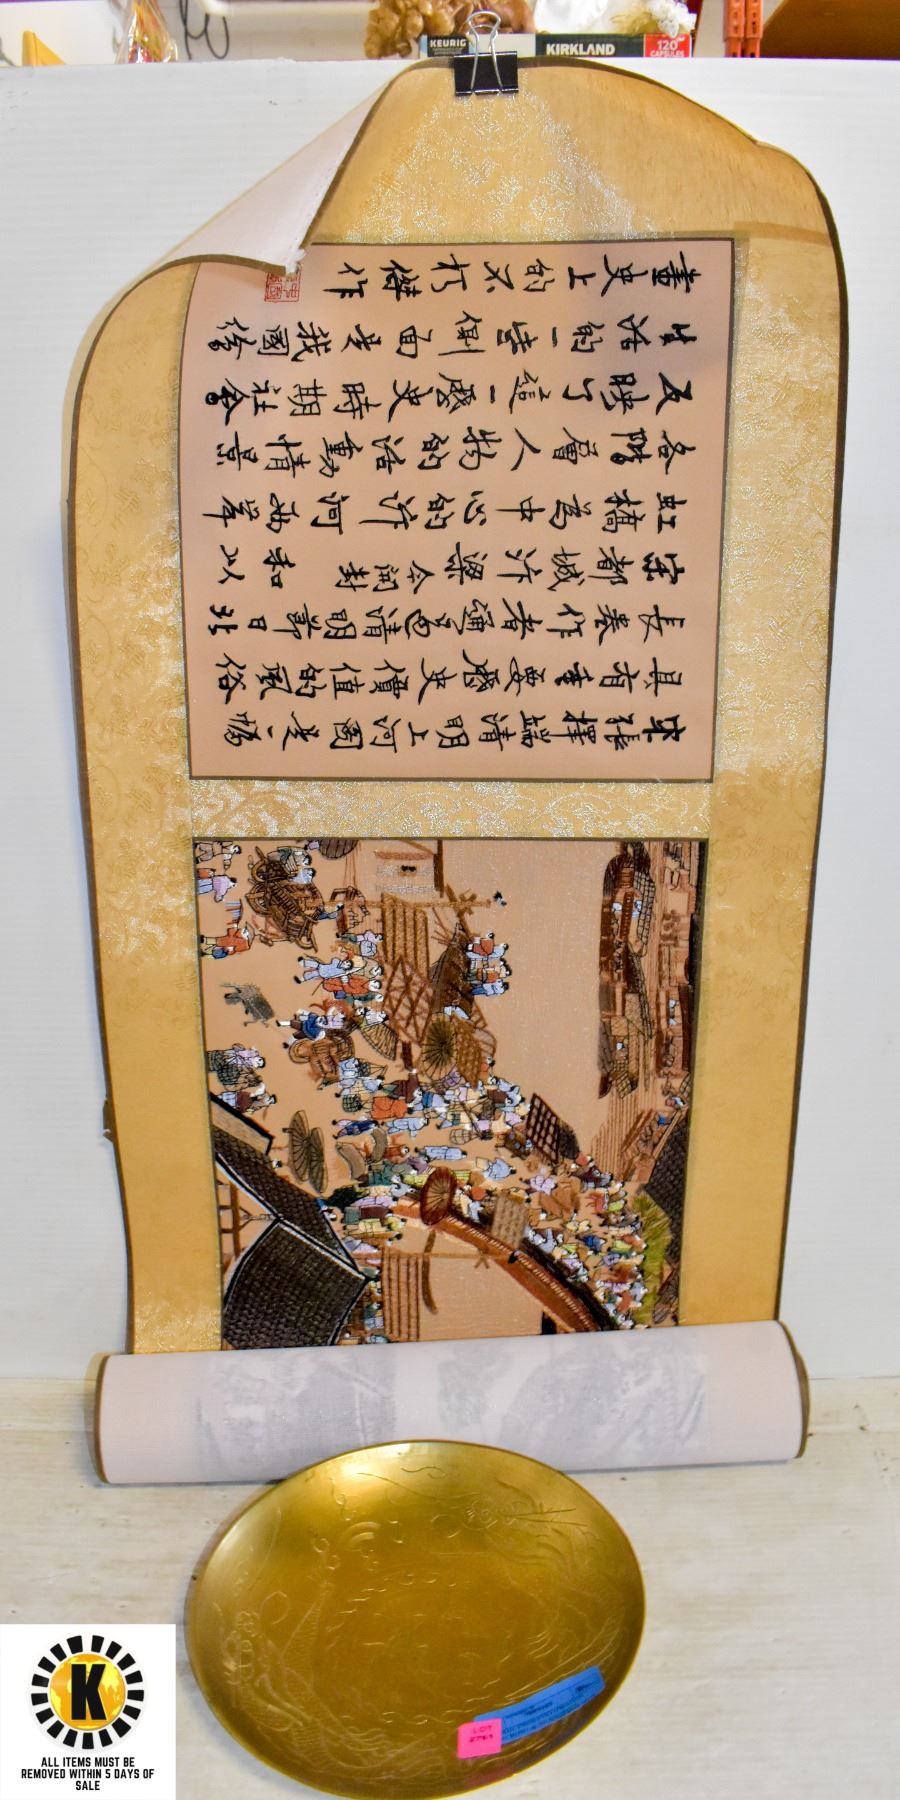 KEURIG
KIRKLAND
120
CAPSULES
宋張擇端清明上河圖是一幅
具有重要歷史價值的風俗
長卷作者通過清明節日北
宋都城汴梁今開封和以
虹橋為中心的汴河兩岸
各階層人物的活動情景
反映了這一歷史時期社會
生活的一些側面是我國繪
畫史上的不朽傑作
LOT
K
ALL ITEMS MUST BE
REMOVED WITHIN 5 DAYS OF
SALE